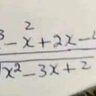 ³ - x² + 2x -
√x² - 3x + 2